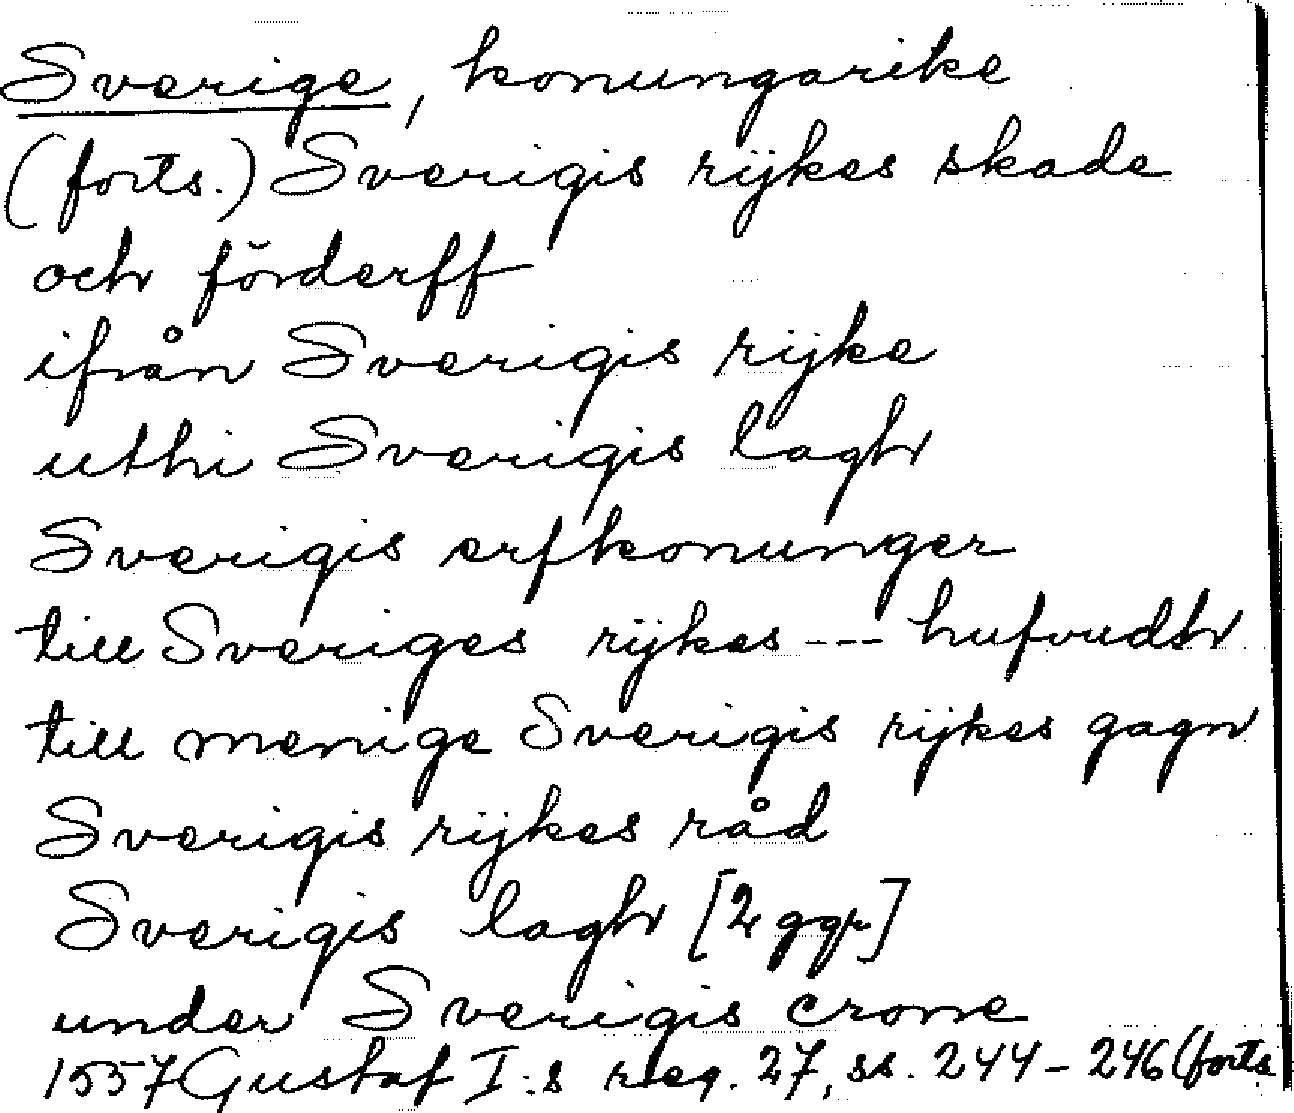 Sverige, konungarike
(forts.) Sverigis rijkes skade
och förderff
ifrån Sverigis rijke
uthi Sverigis lagh
Sverigis erfkonunger
till Sveriges rijkes --- hufvudh
till menige Sverigis rijkes gagn
Sverigis rijkes råd
Sverigis lagh [2 ggr]
under Sverigis crone
1557 Gustaf I:s reg. 27, ss. 244-246 (forts